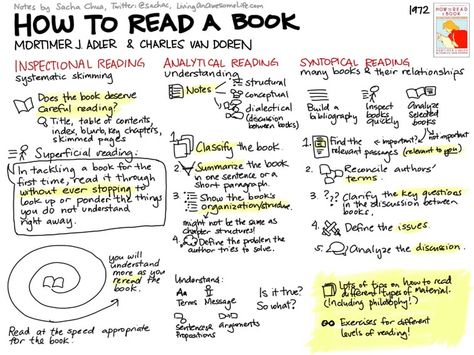 Notes by Sacha Chua, Twitter: @sachac, LivingAnAwesomeLife.com
HOW TO READ A BOOK
MORTIMER J. ADLER & CHARLES VAN DOREN
1972
HOW TO READ
A BOOK
INSPECTIONAL READING
systematic skimming
Does the book deserve
careful reading?
Title, table of contents,
index, blurb, key chapters,
skimmed pages
Superficial reading:
In tackling a book for the
first time, read it through
without ever stopping to
look up or ponder the things
you do not understand
right away.
you will
understand
more as you
reread the
book.
Read at the speed appropriate
for the book.
ANALYTICAL READING
understanding
Notes
structural
conceptual
dialectical
(discussion between books)
1. Classify the book.
2. Summarize the book
in one sentence or a
short paragraph.
3. Show the book's
organization/structure.
might not be the same as
chapter structures!
4. Define the problem the
author tries to solve.
Understand:
Aa
Terms
Message
Sentences &
Propositions
arguments
Is it true?
So what?
SYNTOPICAL READING
many books & their relationships
Build a
bibliography
Inspect
books
quickly
Analyze
selected
books
1. Find the
relevant passages
important?
not important
(relevant to you)
2. Reconcile authors'
terms.
3. ??? Clarify the key questions
in the discussion between
books.
4. Define the issues.
5. Analyze the discussion.
Lots of tips on how to read
different types of material.
(Including philosophy!)
Exercises for different
levels of reading!